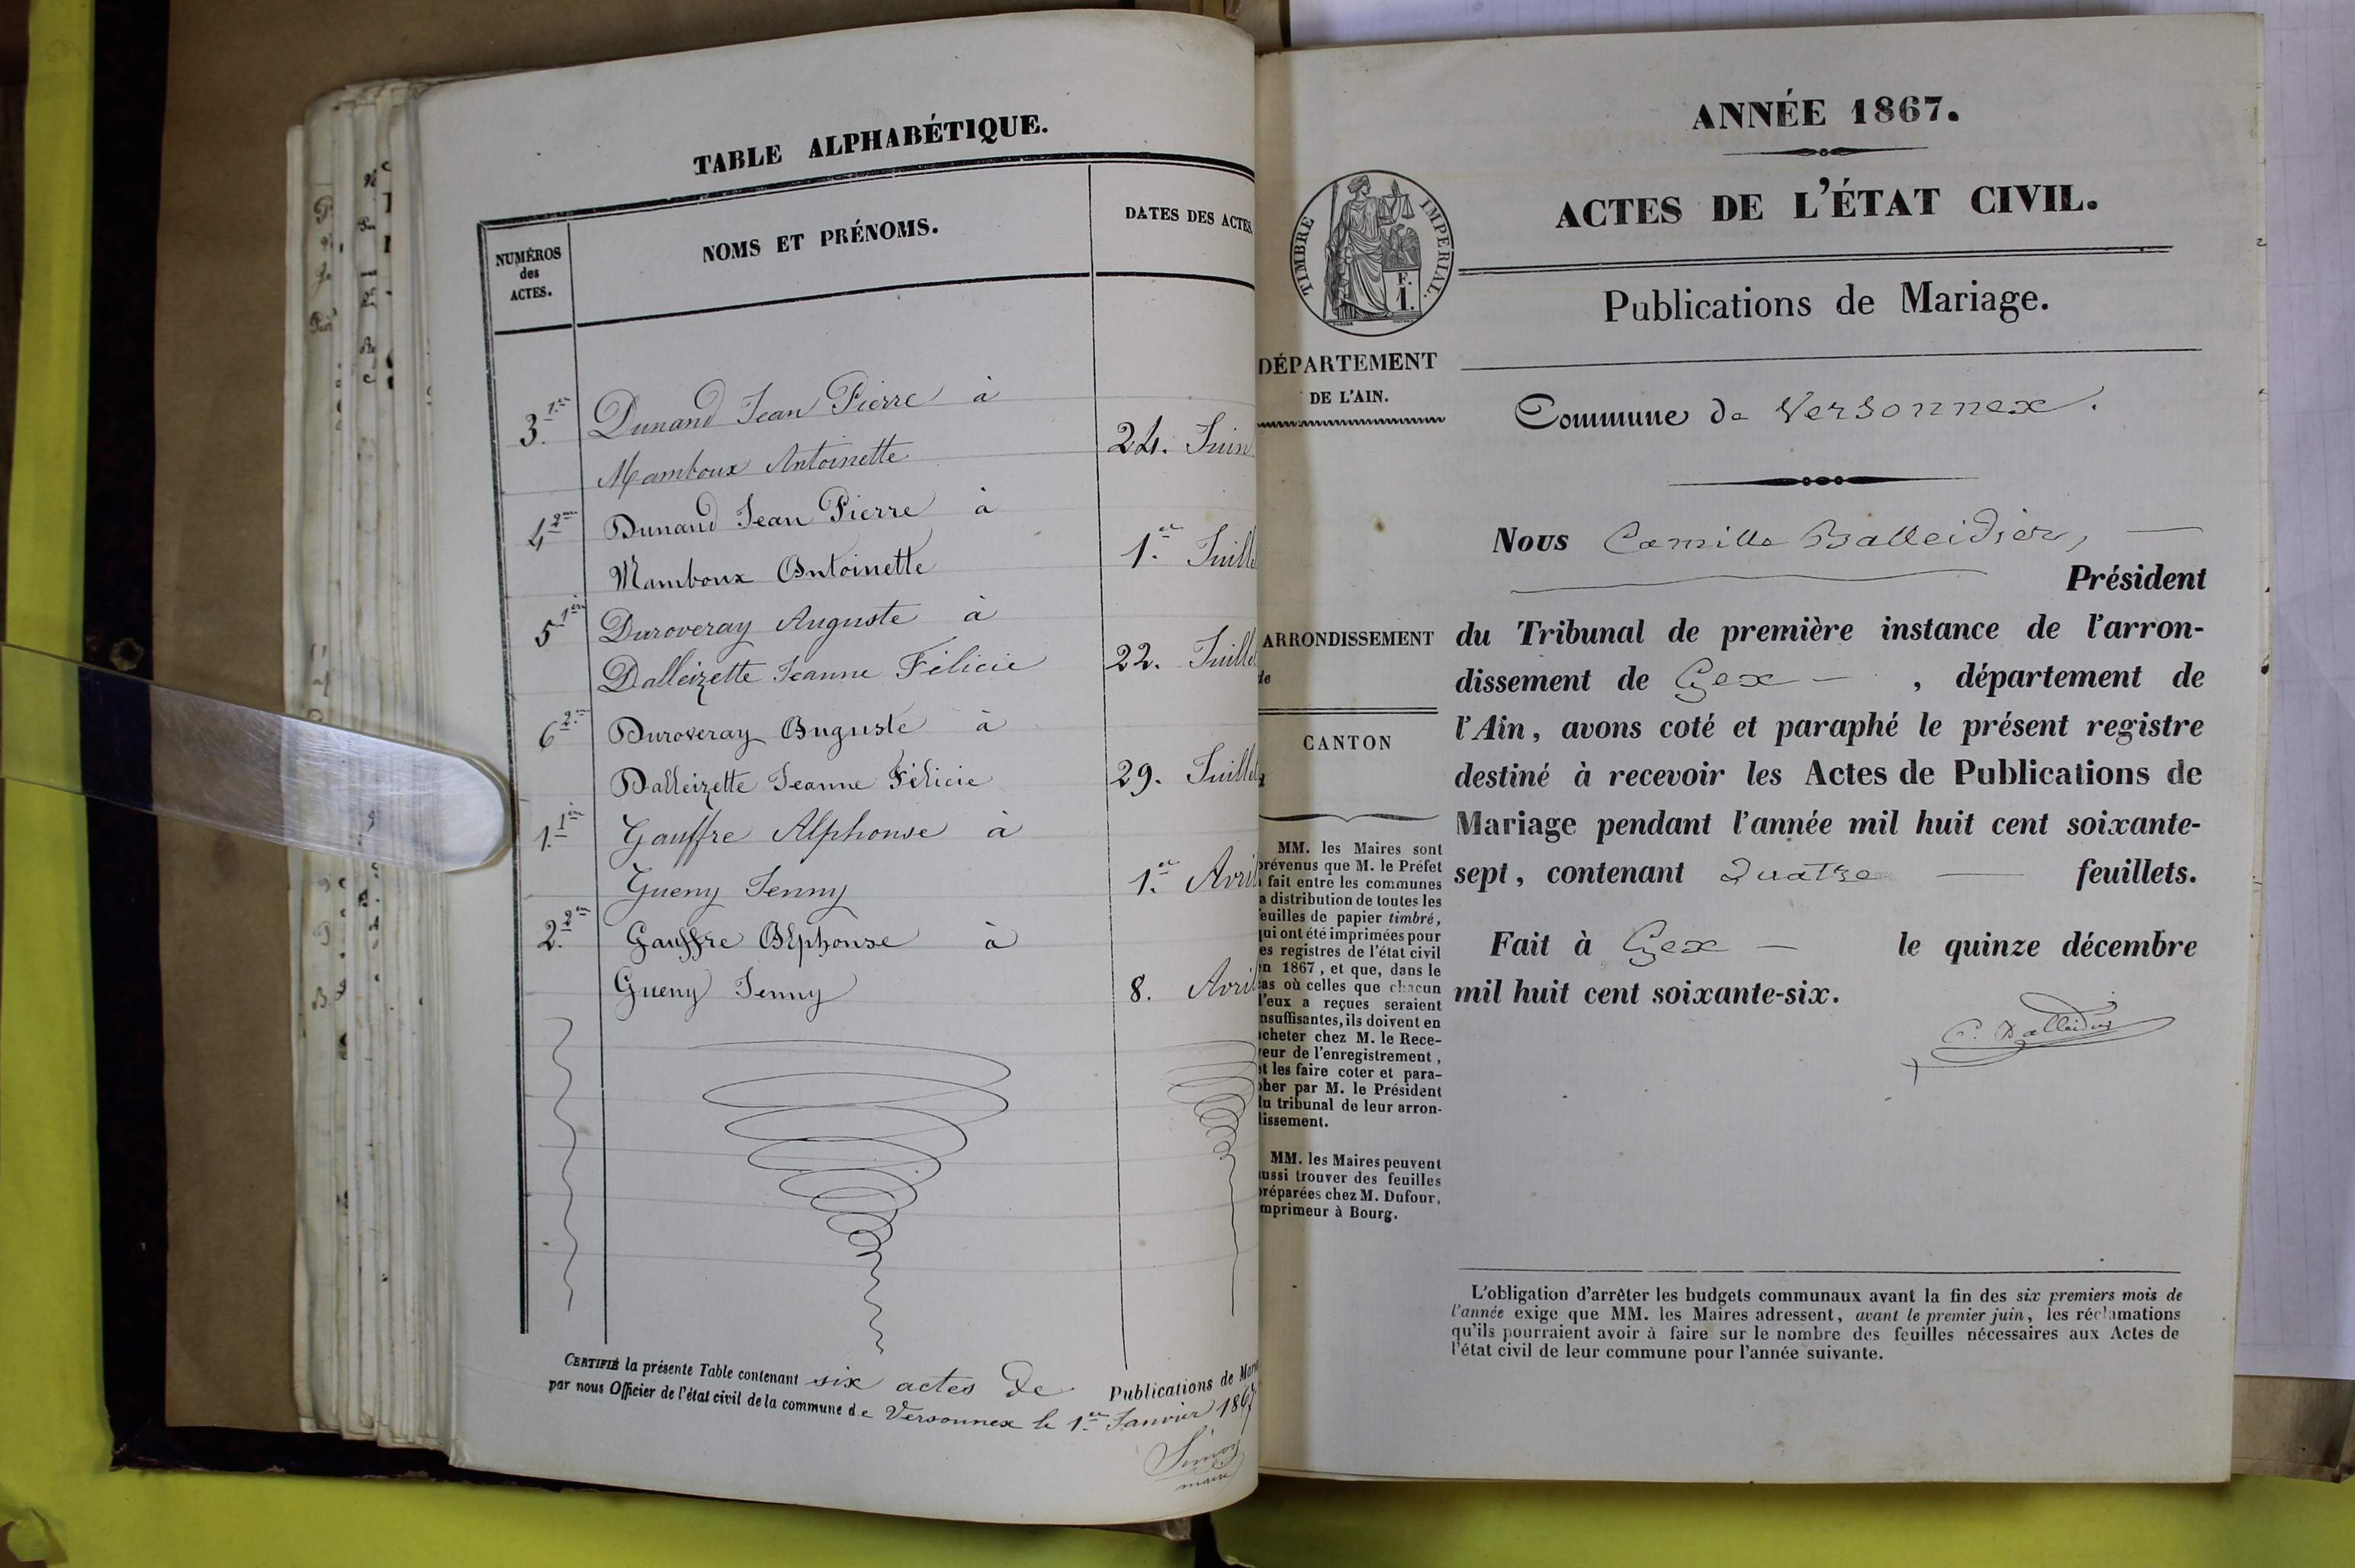 TABLE ALPHABÉTIQUE.
NUMÉROS
des
ACTES.
NOMS ET PRÉNOMS.
DATES DES ACTES
3. 1.ère Dunand Jean Pierre à
Mamboux Antoinette 24. Juin
4 2.me Dunand Jean Pierre à
Mamboux Antoinette 1.er Juille
5 1ère Duroveray Auguste à
Dalleizette Jeanne Félicie 22. Juille
6 2.me Duroveray Auguste à
Dalleizette Jeanne Félicie 29. Juillet
1. 1ère Gauffre Alphonse à
Gueny Jenny 1.er Avril
2. 2me Gauffre Alphonse à
Gueny Jenny 8. Avril
CERTIFIÉ la présente Table contenant six actes de Publications de Mar
par nous Officier de l'état civil de la commune de Versonnex le 1.er Janvier 1867
Simon
maire
ANNÉE 1867.
ACTES DE L'ÉTAT CIVIL.
TIMBRE IMPERIAL.
F.
1.
Publications de Mariage.
DÉPARTEMENT
DE L'AIN.
Commune de Versonnex.
Nous Camille Balleidier,
Président
du Tribunal de première instance de l'arron-
dissement de Gex , département de
l'Ain, avons coté et paraphé le présent registre
destiné à recevoir les Actes de Publications de
Mariage pendant l'année mil huit cent soixante-
sept, contenant Quatre feuillets.
Fait à Gex le quinze décembre
mil huit cent soixante-six.
C. Balleidier
ARRONDISSEMENT
de
CANTON
MM. les Maires sont
prévenus que M. le Préfet
a fait entre les communes
la distribution de toutes les
feuilles de papier timbré,
qui ont été imprimées pour
les registres de l'état civil
en 1867, et que, dans le
cas où celles que chacun
d'eux a reçues seraient
insuffisantes, ils doivent en
acheter chez M. le Rece-
veur de l'enregistrement,
et les faire coter et para-
pher par M. le Président
du tribunal de leur arron-
dissement.
MM. les Maires peuvent
aussi trouver des feuilles
préparées chez M. Dufour,
imprimeur à Bourg.
L'obligation d'arrêter les budgets communaux avant la fin des six premiers mois de
l'année exige que MM. les Maires adressent, avant le premier juin, les réclamations
qu'ils pourraient avoir à faire sur le nombre des feuilles nécessaires aux Actes de
l'état civil de leur commune pour l'année suivante.